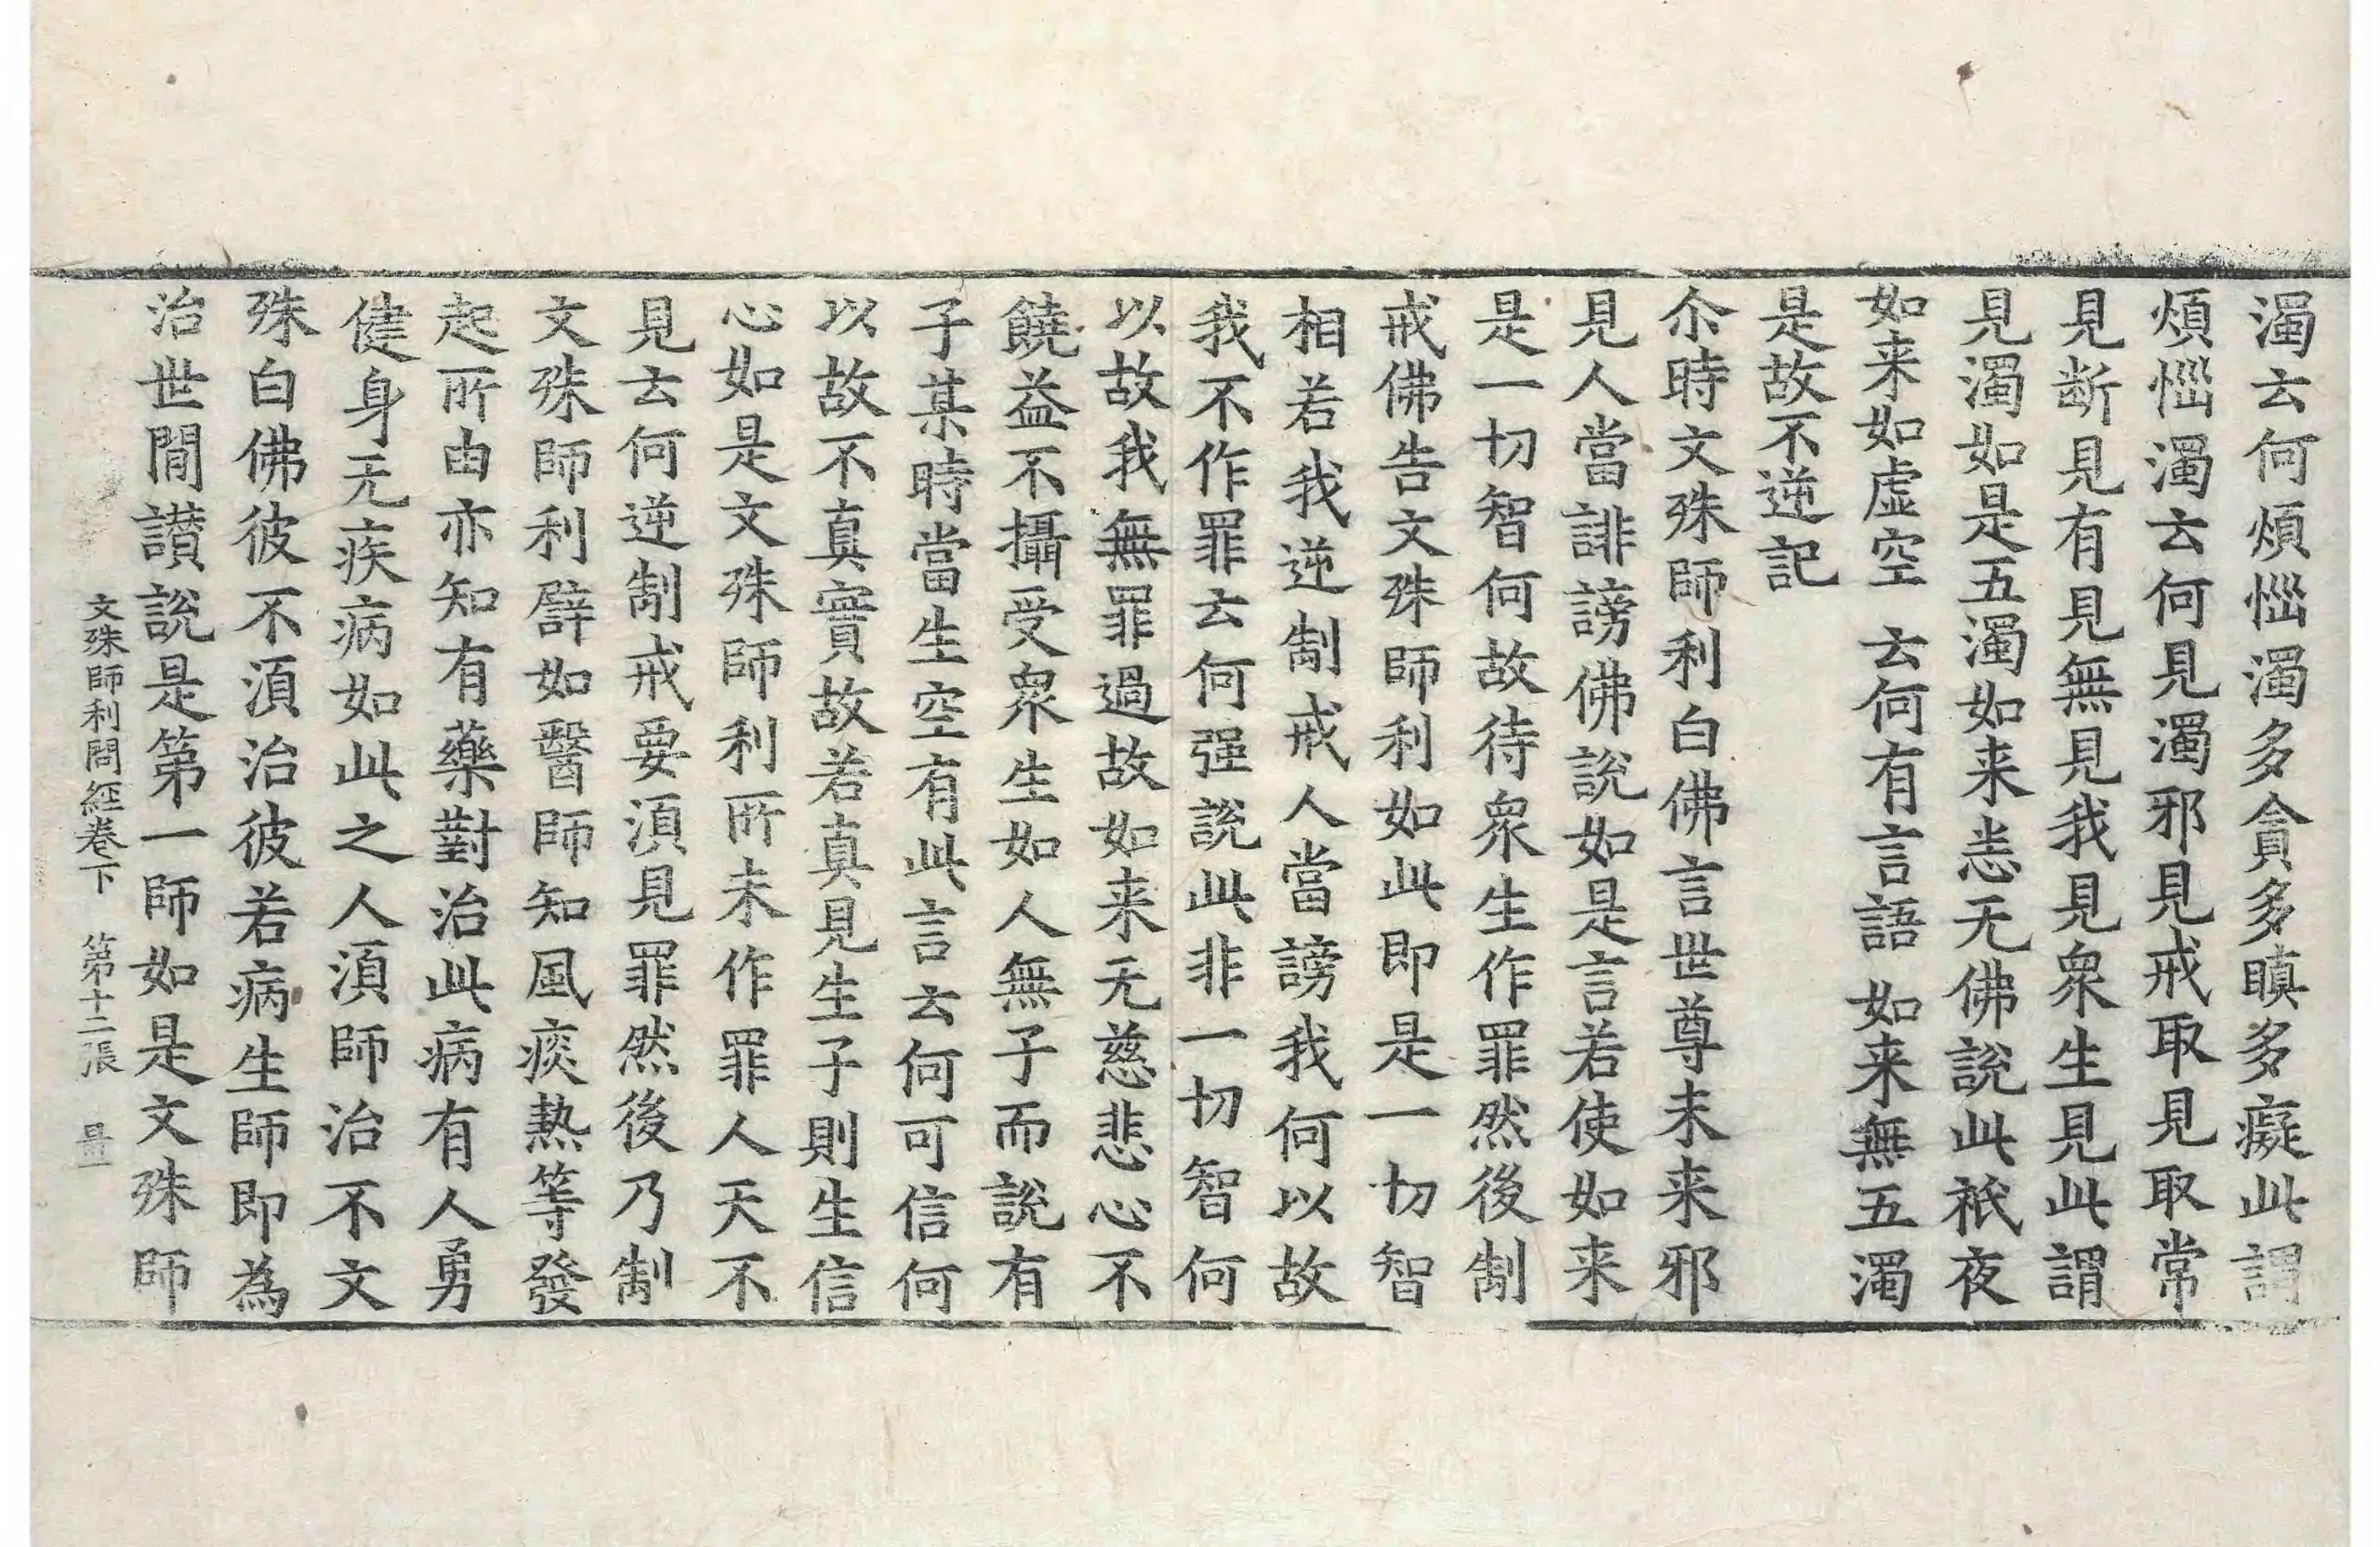 濁云何煩惱濁多貪多瞋多癡此謂
煩惱濁云何見濁邪見戒取見取常
見断見有見無見我見衆生見此謂
見濁如是五濁如来恙无佛說此祇夜
如来如虛空　云何有言語　如来無五濁
是故不逆記
尒時文殊師利白佛言世尊未来邪
見人當誹謗佛說如是言若使如来
是一切智何故待衆生作罪然後制
戒佛告文殊師利如此即是一切智
相若我逆制戒人當謗我何以故
我不作罪云何强說此非一切智何
以故我無罪過故如来无慈悲心不
饒益不攝受衆生如人無子而說有
子某時當生空有此言云何可信何
以故不真實故若真見生子則生信
心如是文殊師利所未作罪人天不
見云何逆制戒要湏見罪然後乃制
文殊師利譬如醫師知風痰熱等發
起所由亦知有藥對治此病有人勇
健身无疾病如此之人湏師治不文
殊白佛彼不湏治彼若病生師即為
治世間讃說是第一師如是文殊師
文殊師利問經卷下　第十二張　量